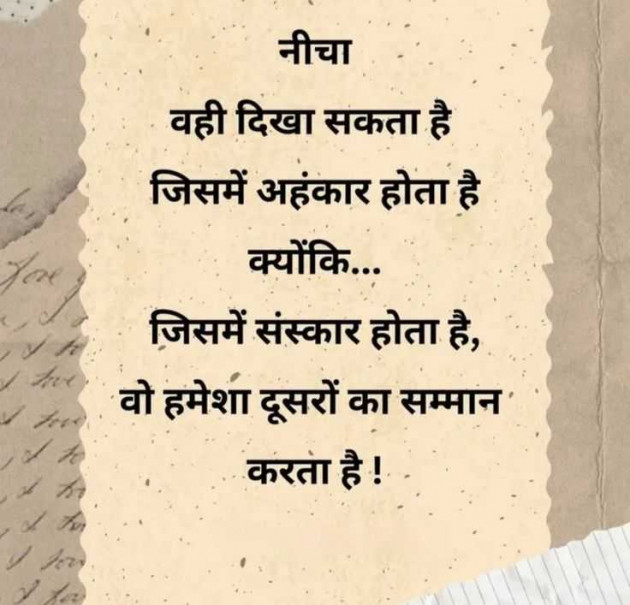 नीचा
वही दिखा सकता है
जिसमें अहंकार होता है
क्योंकि...
जिसमें संस्कार होता है,
वो हमेशा दूसरों का सम्मान
करता है !